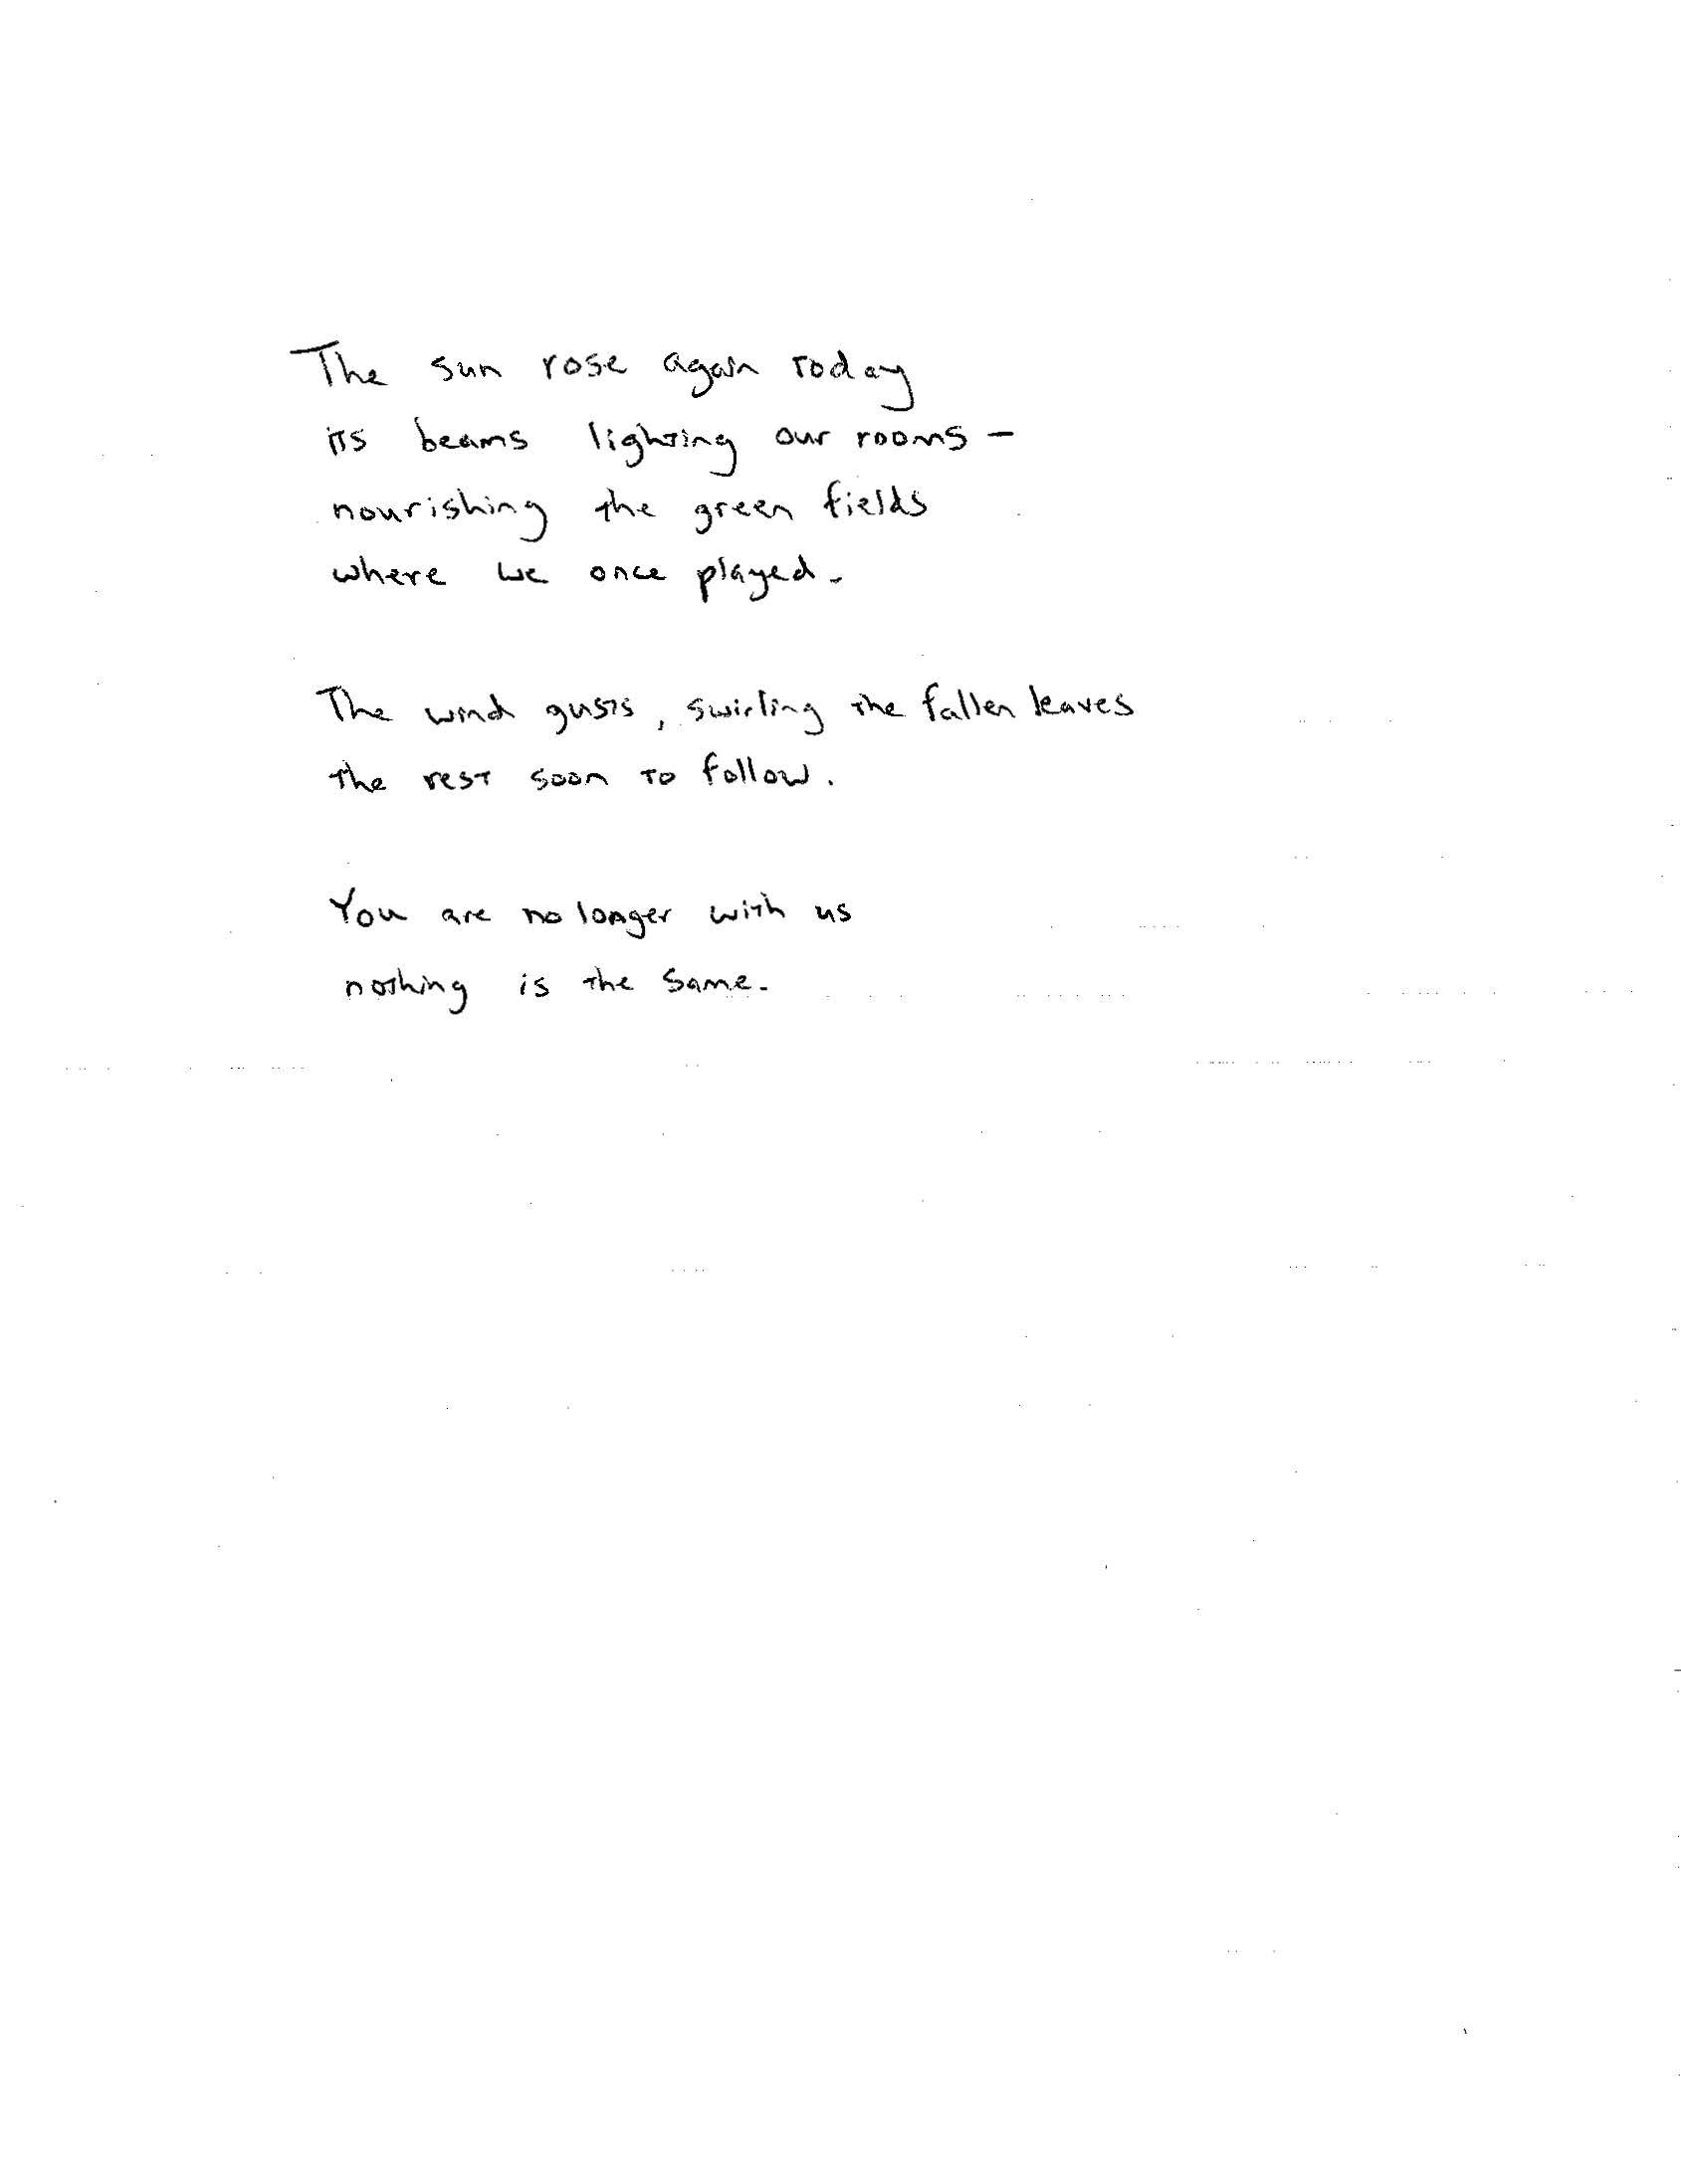 The sun rose again today
its beams lighting our rooms –
nourishing the green fields
where we once played.
The wind gusts, swirling the fallen leaves
the rest soon to follow.
You are no longer with us
nothing is the same.